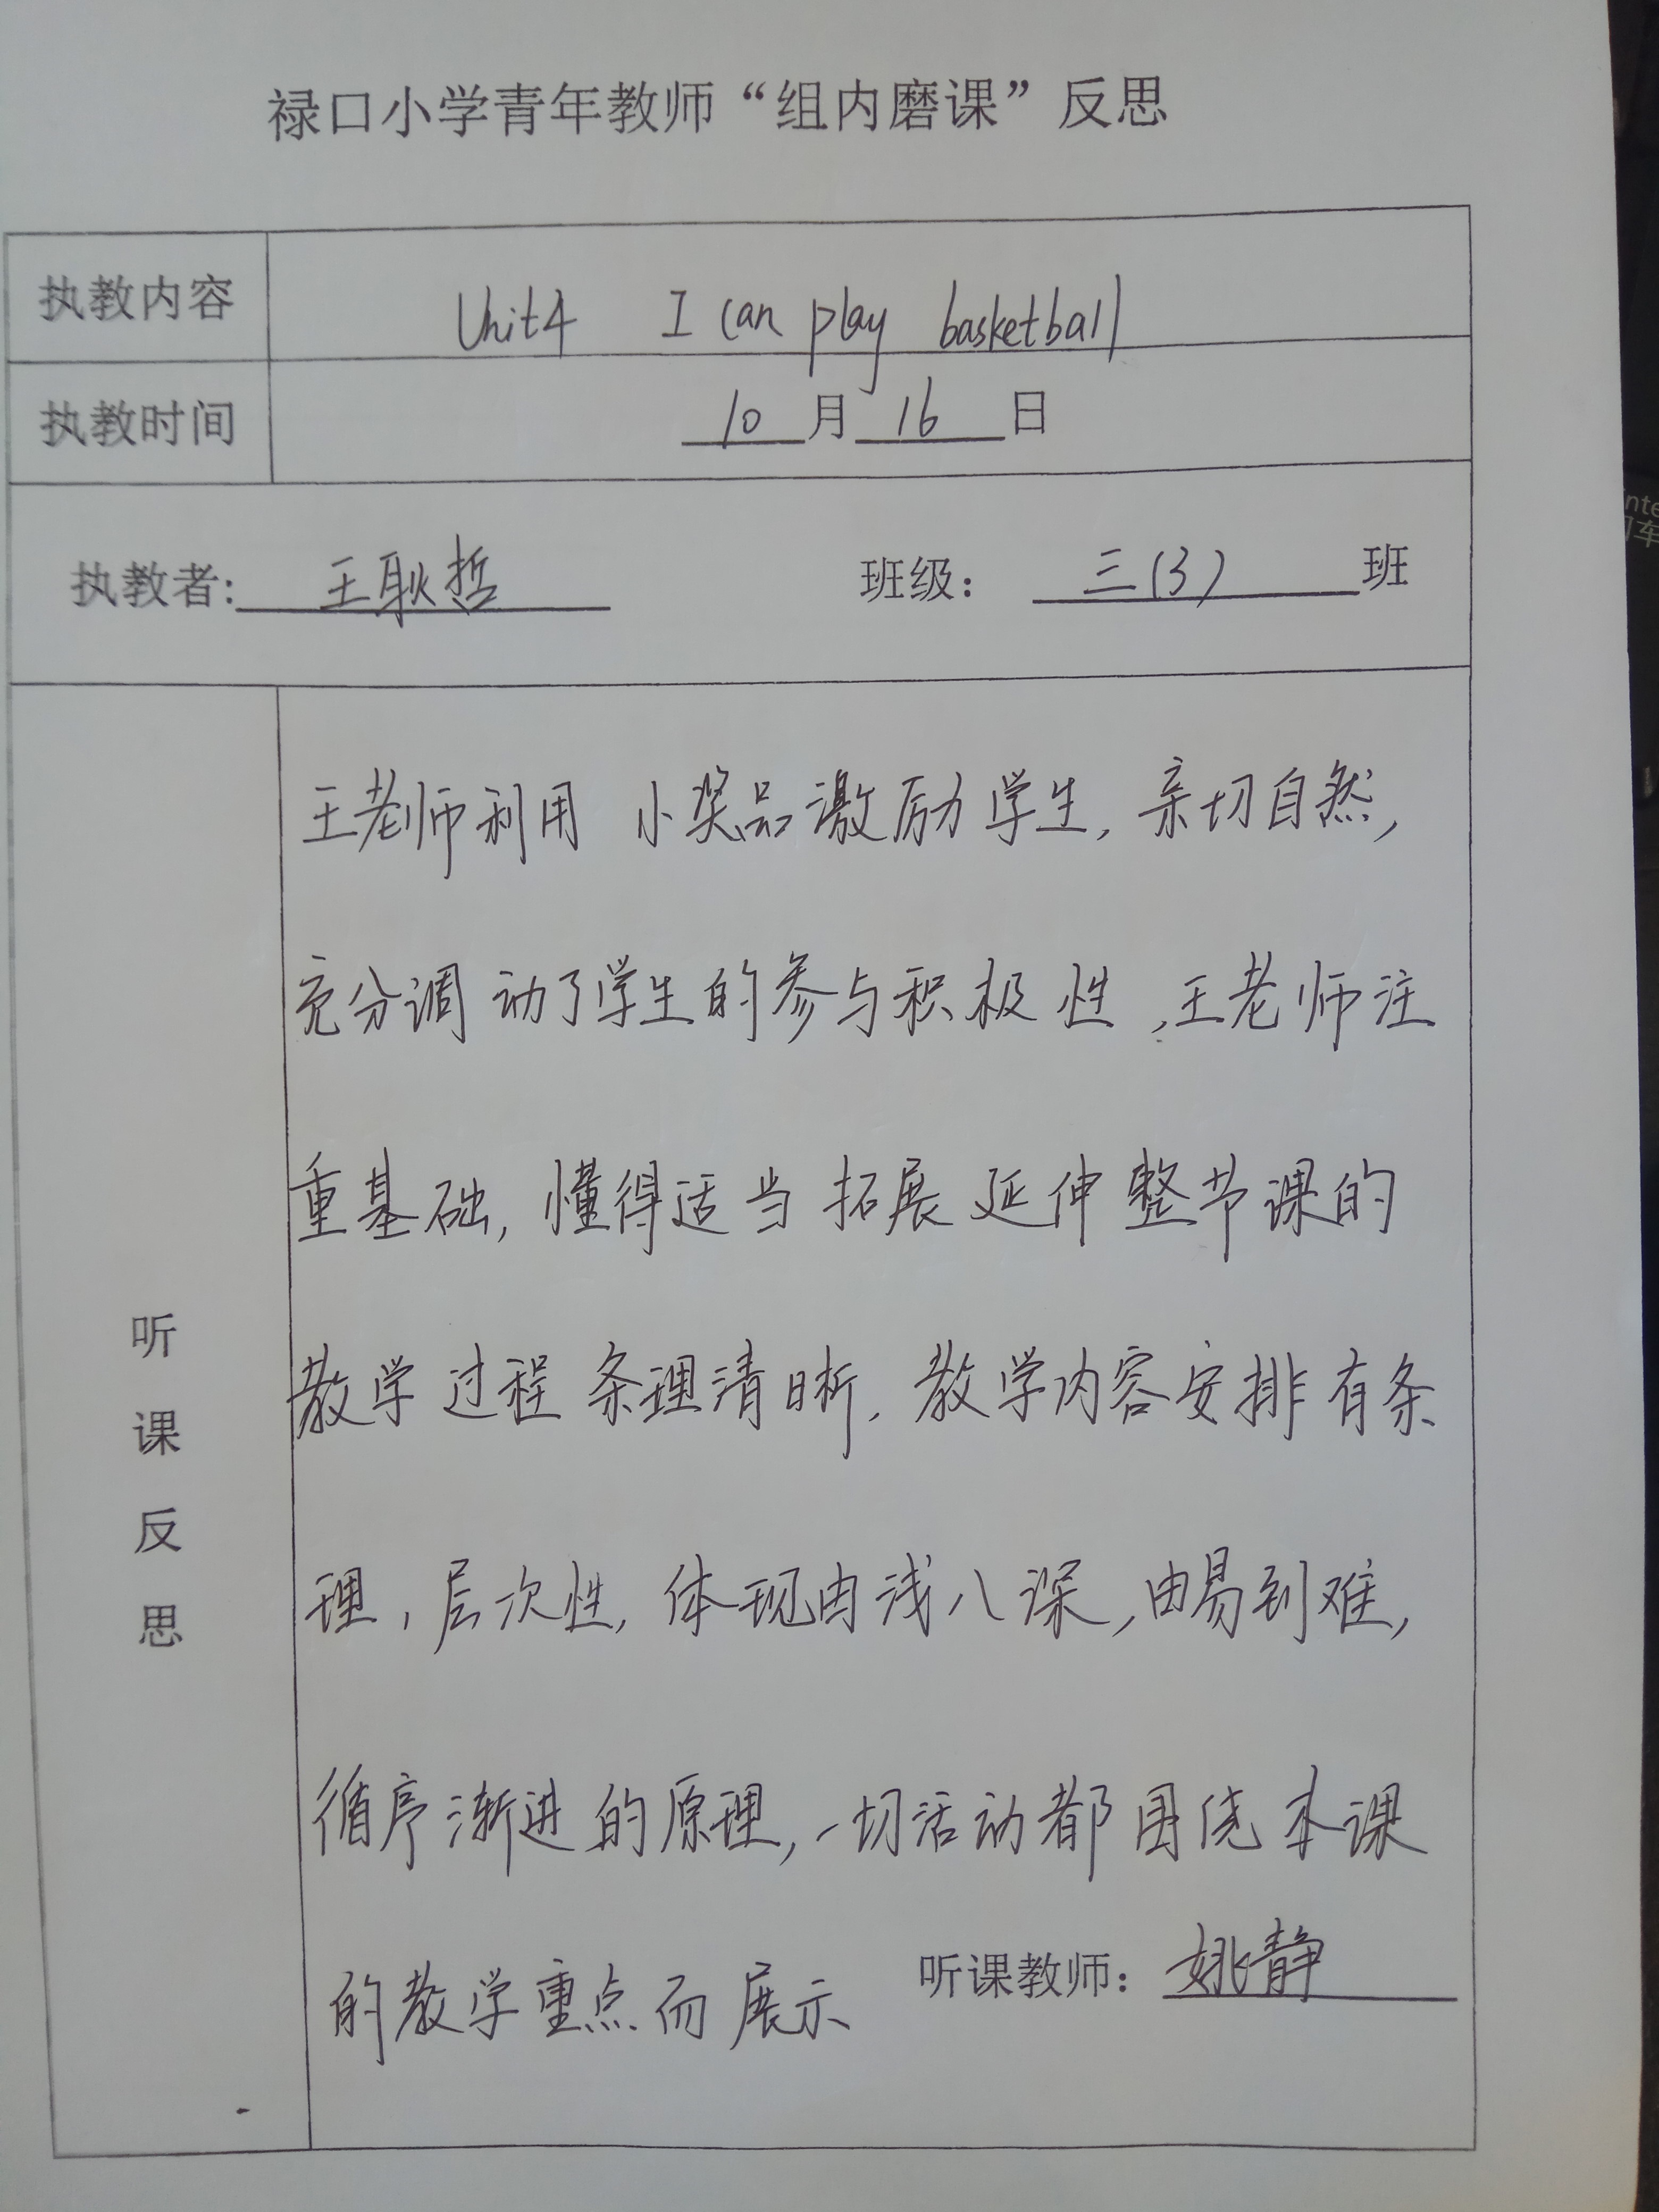 禄口小学青年教师“组内磨课”反思
执教内容 Unit4 I can play basketball
执教时间 10月16日
执教者: 王耿哲 班级: 三(3)班
听课反思
王老师利用小奖品激励学生,亲切自然,
充分调动了学生的参与积极性,王老师注
重基础,懂得适当拓展延伸整节课的
教学过程条理清晰,教学内容安排有条
理,层次性,体现由浅入深,由易到难,
循序渐进的原理,一切活动都围绕本课
的教学重点而展示
听课教师: 姚静